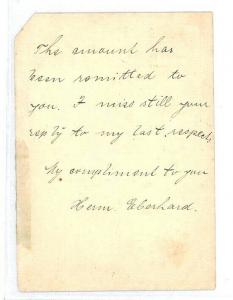 The amount has
been romitted to
you. I miss still your
reply to my last respect,
My compliment to you
Herm. Eberhard.